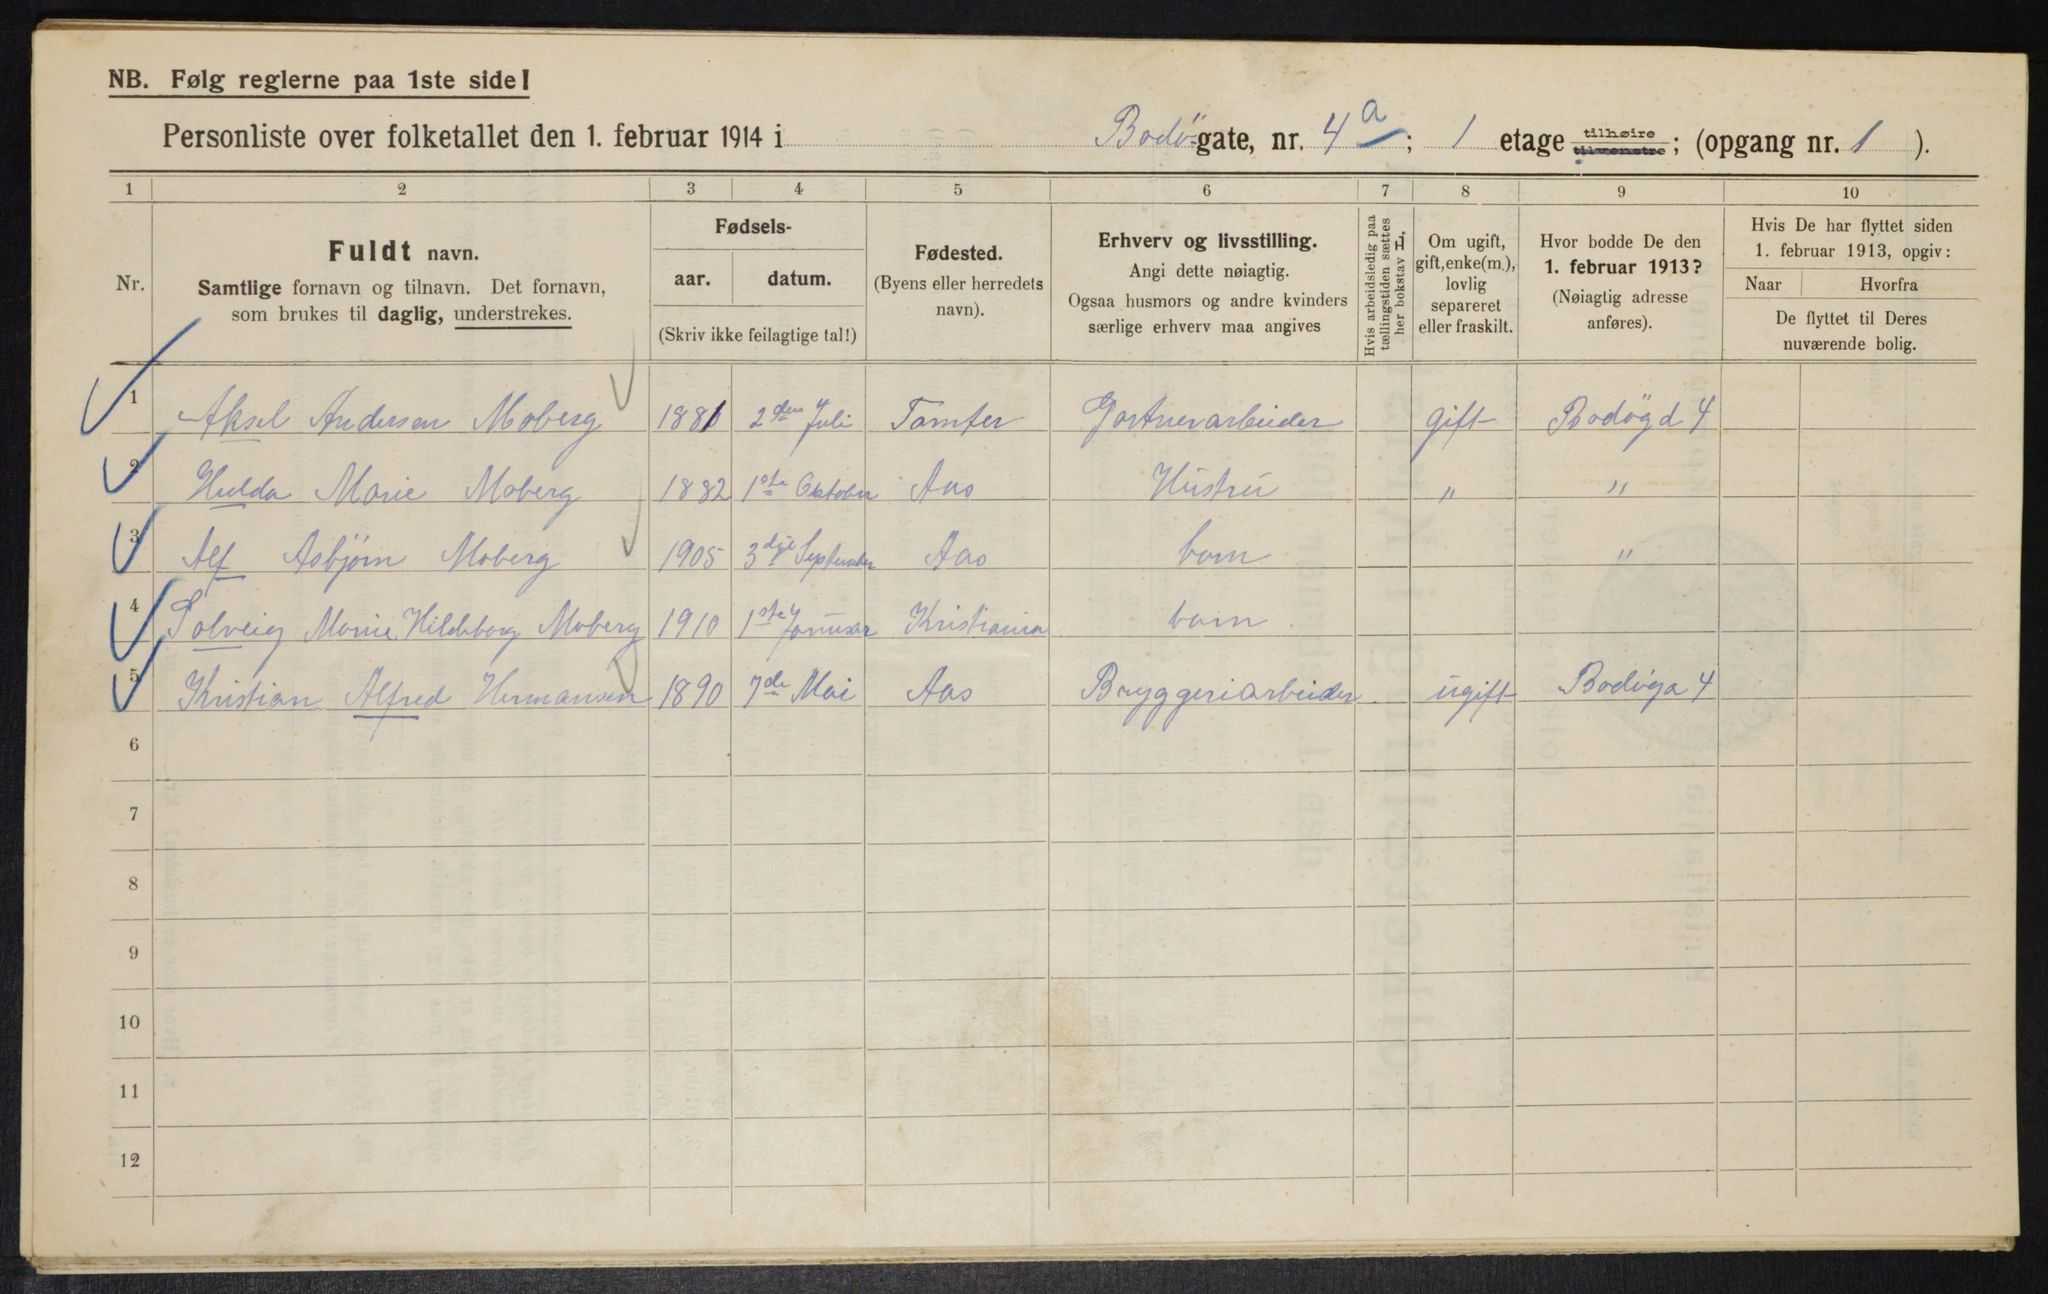 NB. Følg reglerne paa 1ste side!
Personliste over folketallet den 1. februar 1914 i Bodö-gate, nr. 4 a; 1 etage tilhøire tilvenstre; (opgang nr. 1).
1 2 3 4 5 6 7 8 9 10
Nr.
Fuldt navn.
Samtlige fornavn og tilnavn. Det fornavn,
som brukes til daglig, understrekes.
Fødsels-
aar. datum.
(Skriv ikke feilagtige tal!)
Fødested.
(Byens eller herredets
navn).
Erhverv og livsstilling.
Angi dette nøiagtig.
Ogsaa husmors og andre kvinders
særlige erhverv maa angives
Hvis arbeidsledig paa
tællingstiden sættes
her bokstav H.
Om ugift,
gift, enke(m.),
lovlig
separeret
eller fraskilt.
Hvor bodde De den
1. februar 1913?
(Nøiagtig adresse
anføres).
Hvis De har flyttet siden
1. februar 1913, opgiv:
Naar Hvorfra
De flyttet til Deres
nuværende bolig.
1 Aksel Andersen Moberg 1881 2den Juli Tomter Gartnerarbeider gift Bodögd 4
2 Hulda Marie Moberg 1882 1ste Oktober Aas Hustru " "
3 Alf Asbjørn Moberg 1905 3dje September Aas barn "
4 Solveig Marie Hildeborg Moberg 1910 1ste Januar Kristiania barn
5 Kristian Alfred Hermansen 1890 7de Mai Aas Bryggeriarbeider ugift Bodöga 4
6
7
8
9
10
11
12